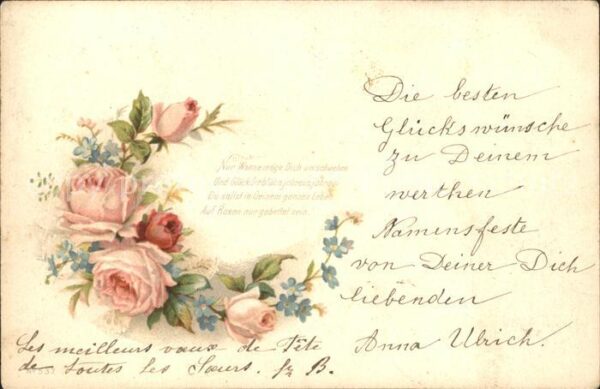 Nur Wonne möge Dich umschweben
Und Glück
Du sollst in Deinem ganzen Leben
Auf Rosen nur gebettet sein.
Die besten
Glückswünsche
zu Deinem
werthen
Namensfeste
von Deiner Dich
liebenden
Anna Ulrich.
Les meilleurs vœux de Fête
de toutes les Sœurs. B.